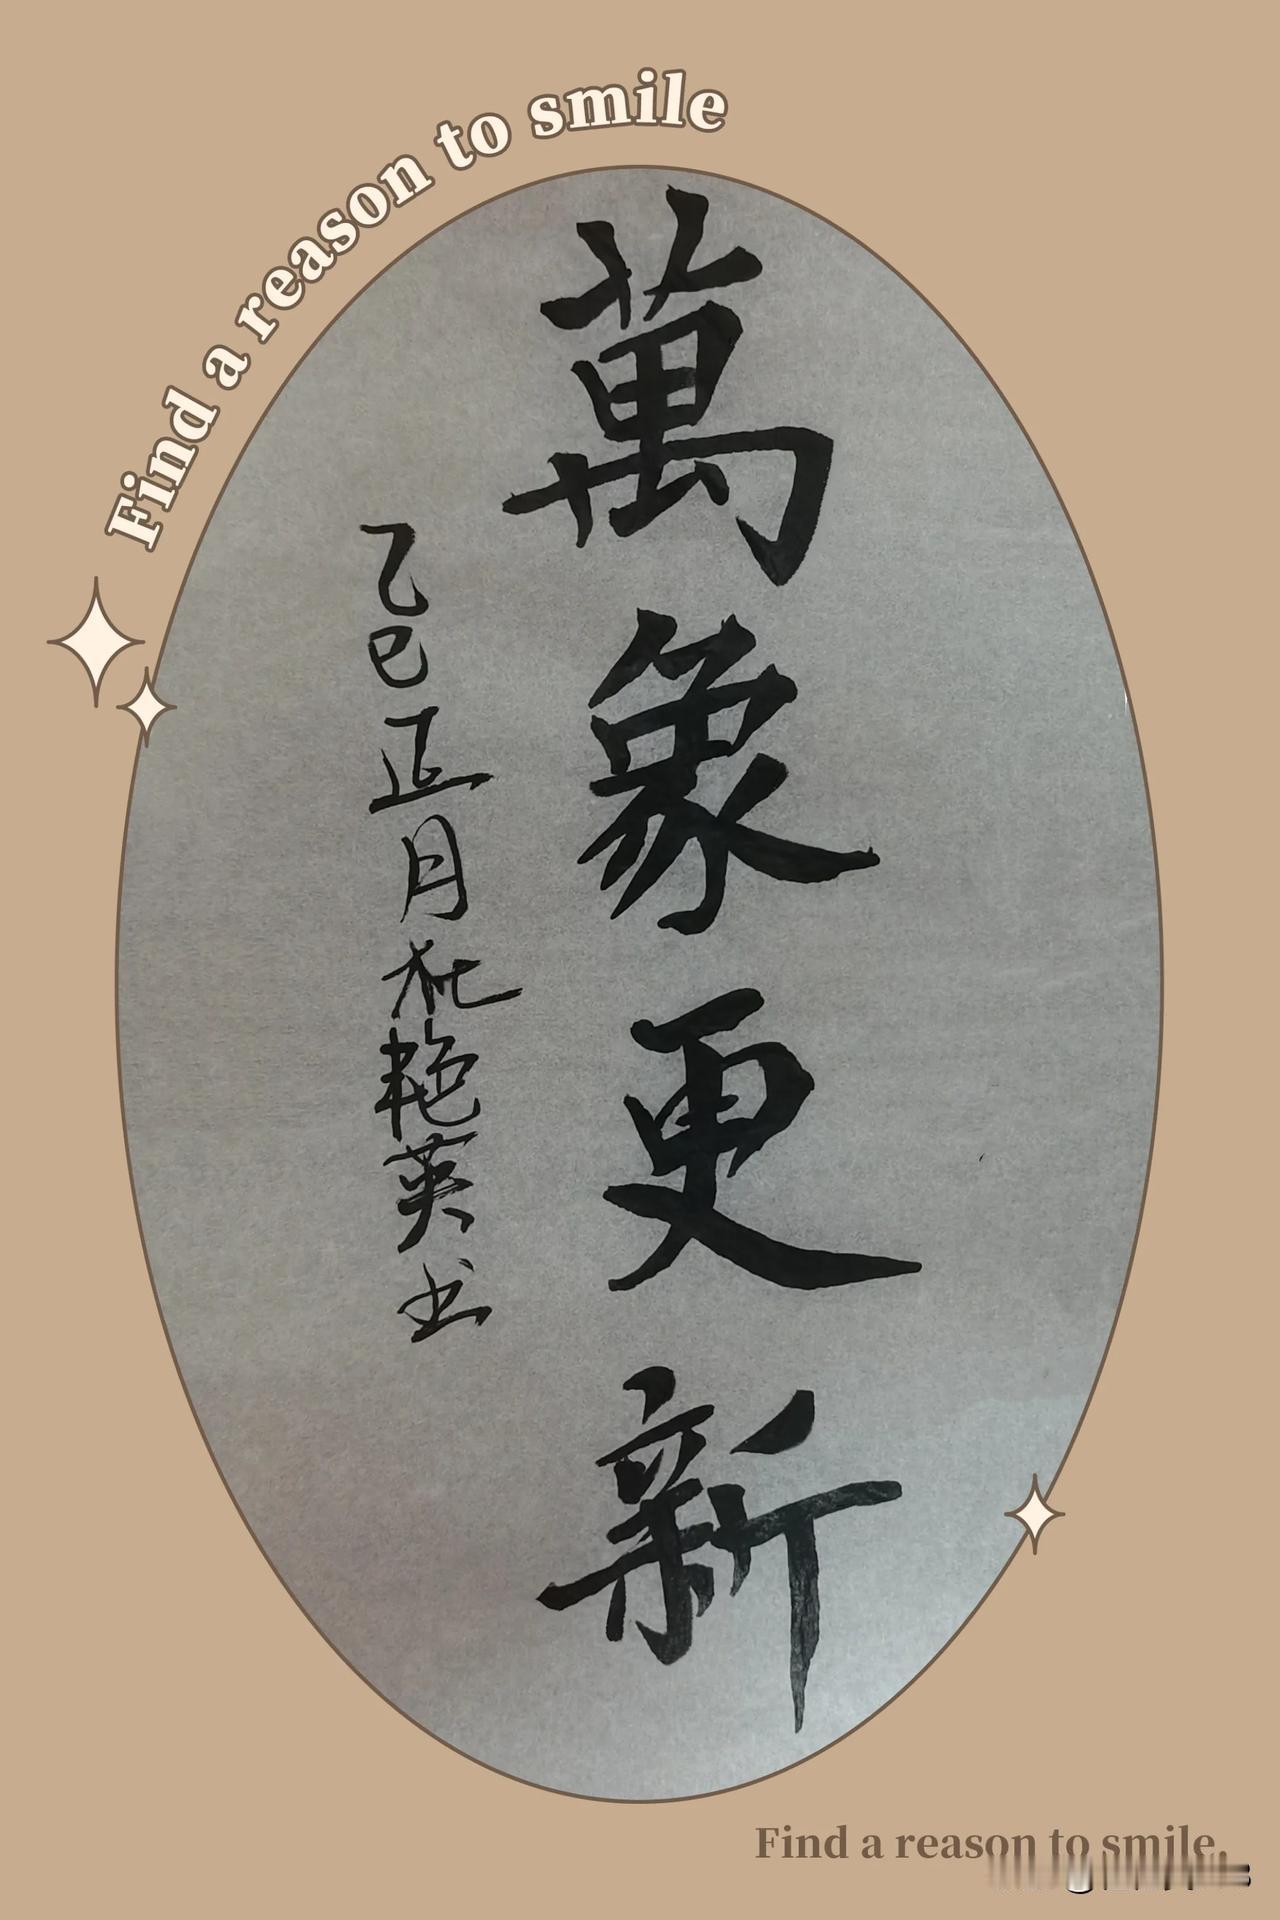 Find a reason to smile
萬象更新
乙巳正月
艳英书
Find a reason to smile.